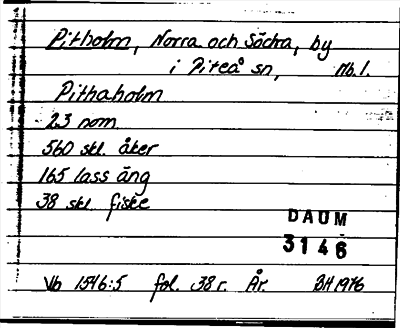 Pitholm, Norra och Södra, by
i Piteå sn, Nb.l.
Pithaholm
23 nom.
560 skl. åker
165 lass äng
38 skl fiske
DAUM
3146
Vb 1546:5 fol. 38 r. År. BH 1976